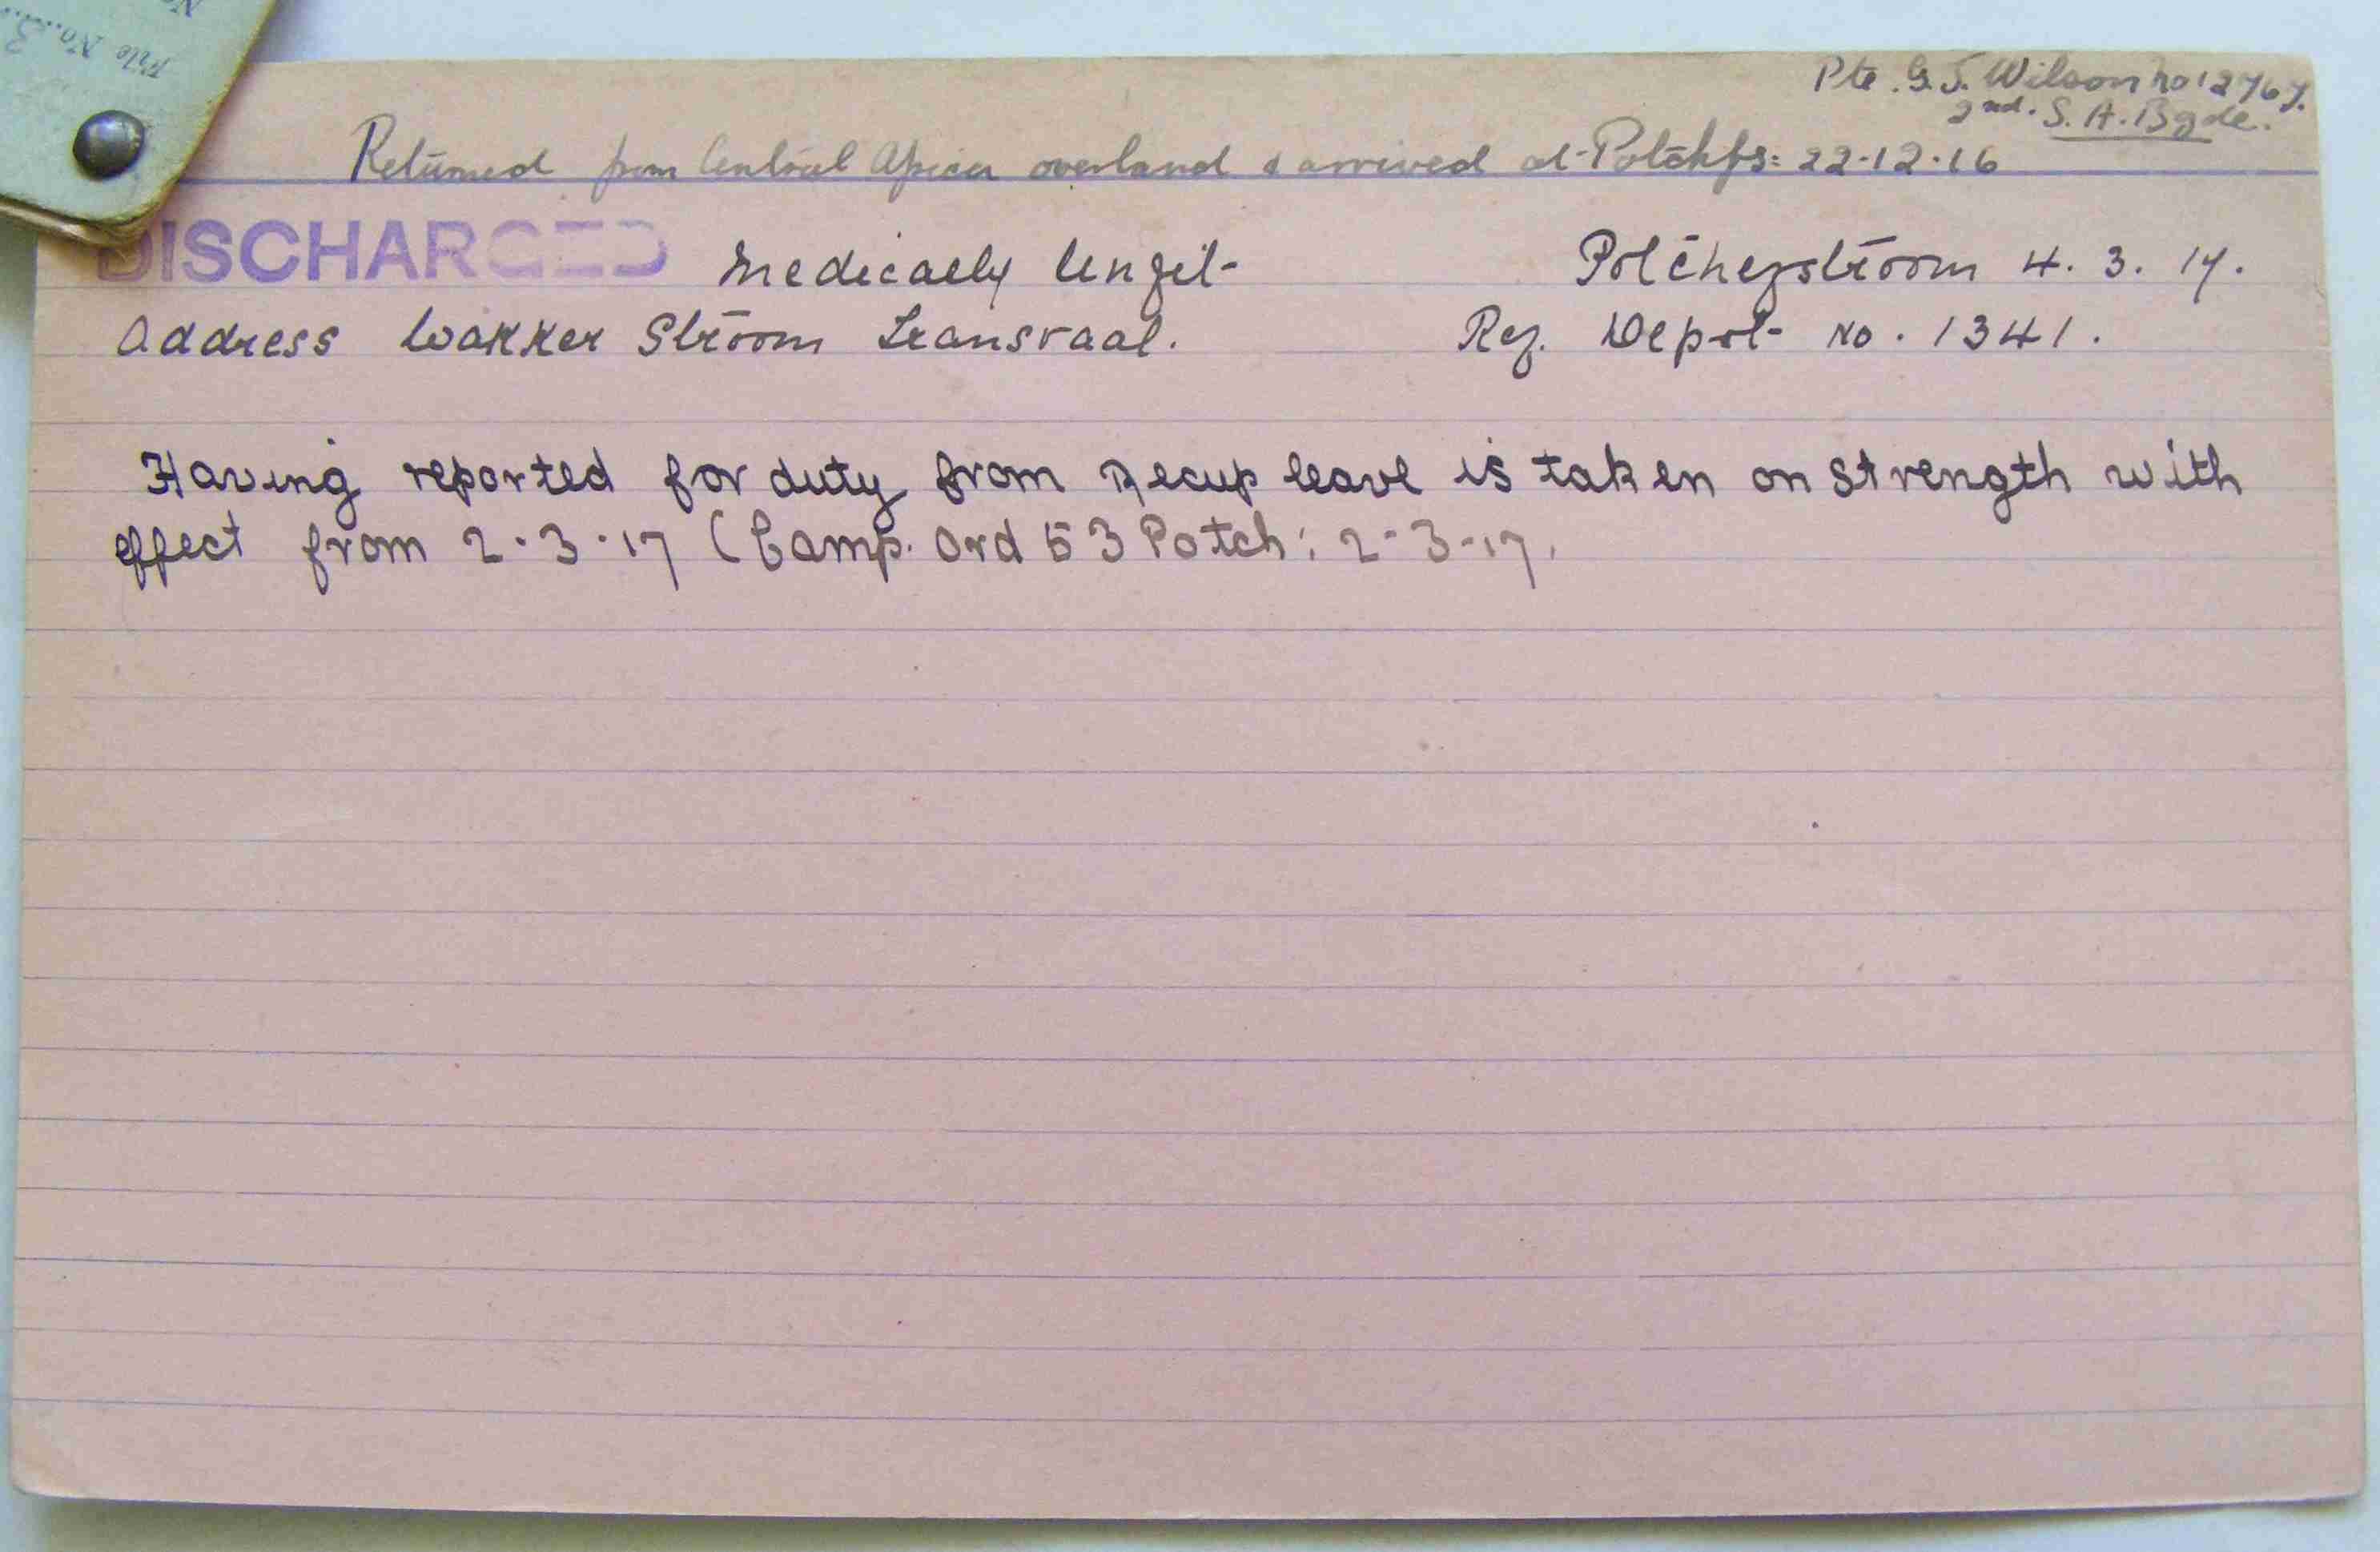 File No. 3
Pte. G. J. Wilson No 12767.
2nd. S. A. Bgde.
Returned from Central Africa overland & arrived at Potchfs: 22-12-16
DISCHARGED Medically Unfit - Potchefstroom 4. 3. 17.
Address Wakker Stroom Transvaal. Reg. Depot No. 1341.
Having reported for duty from Recup leave is taken on strength with
effect from 2-3-17 (Camp. Ord 53 Potch: 2-3-17.